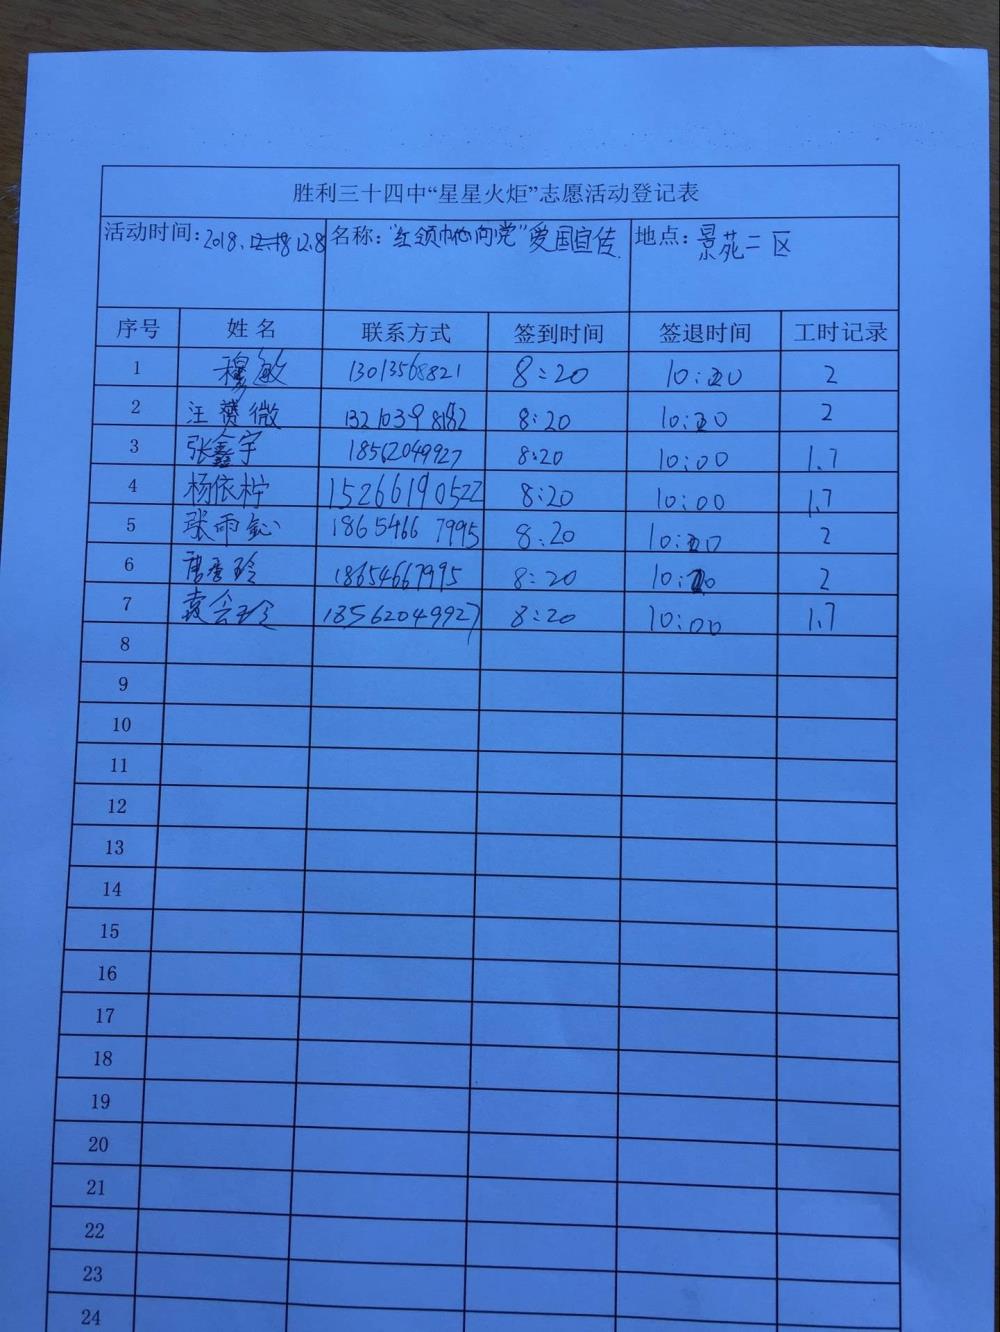 胜利三十四中“星星火炬”志愿活动登记表
活动时间：2018.12.8 名称：“红领巾心向党”爱国宣传 地点：景苑二区
序号 姓名 联系方式 签到时间 签退时间 工时记录
1 穆敏 13013568821 8:20 10:20 2
2 汪赟微 8:20 10:20 2
3 张鑫宇 18562049927 8:20 10:00 1.7
4 杨依柠 15266190522 8:20 10:00 1.7
5 张雨 18654667995 8:20 10:20 2
6 18654667995 8:20 10:20 2
7 袁会珍 18562049927 8:20 10:00 1.7
8
9
10
11
12
13
14
15
16
17
18
19
20
21
22
23
24